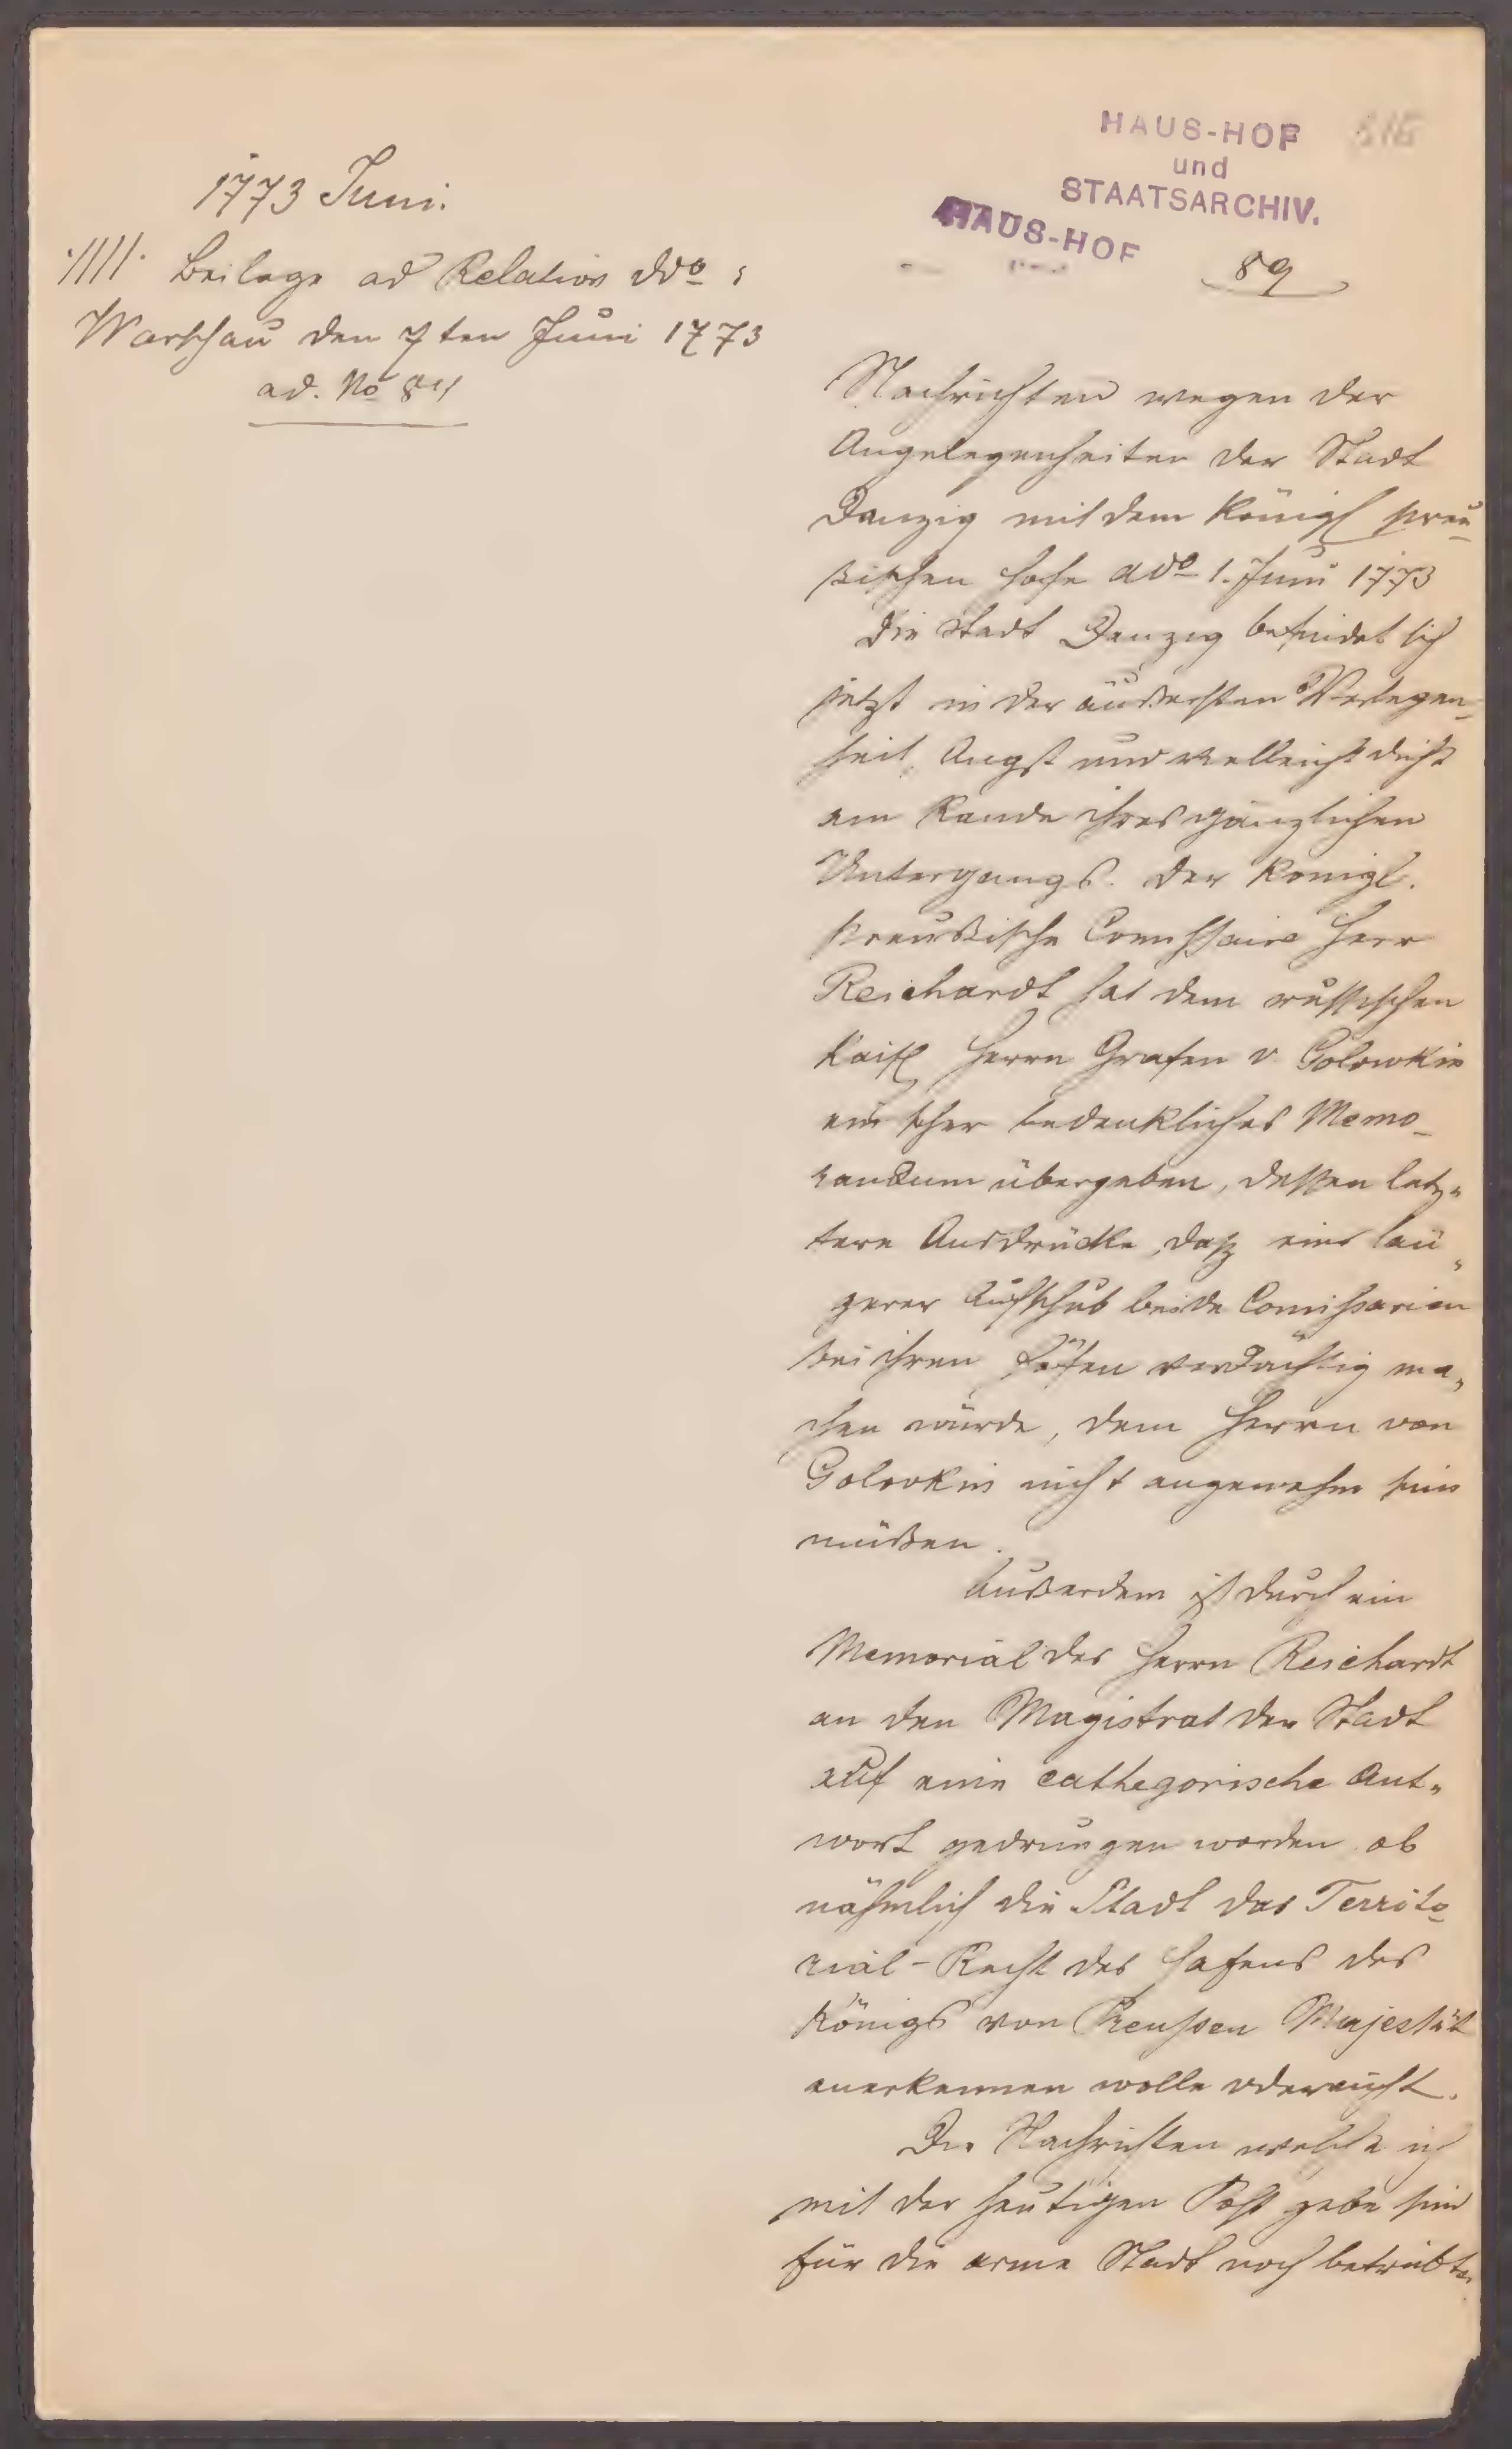 1773 Juni.
·////· Beilage ad Relation ddo:
Warschau den 7ten Juni 1773
ad. No 84
HAUS-HOF
und
STAATSARCHIV.
HAUS-HOF
89
Nachrichten wegen der
Angelegenheiten der Stadt
Danzig mit dem Königl preu-
ßischen Hofe ddo 1. Juni 1773
Die Stadt Danzig befindet sich
jetzt in der äußersten Verlegen-
heit, Angst und vielleicht dicht
am Rande ihres gänzlichen
Untergangs. Der Königl.
preußische Comissaire Herr
Reichardt hat dem russischen
Kaisl Herrn Grafen v. Golowkin
ein sehr bedenkliches Memo-
randum übergeben, dessen letz-
tere Ausdrücke, daß ein län-
gerer Aufschub beide Comissarien
bei ihren Höfen verdächtig ma-
chen würde, dem Herrn von
Golovkin nicht angenehm sein
müßen.
Außerdem ist durch ein
Memorial des Herrn Reichardt
an den Magistrat der Stadt
auf eine cathegorische Ant-
wort gedrungen worden ob
nähmlich die Stadt das Territo-
rial-Recht des Hafens des
Königs von Preußen Majestät
anerkennen wolle oder nicht.
Die Nachrichten welche ich
mit der heutigen Post gebe sind
für die arme Stadt noch betrübter